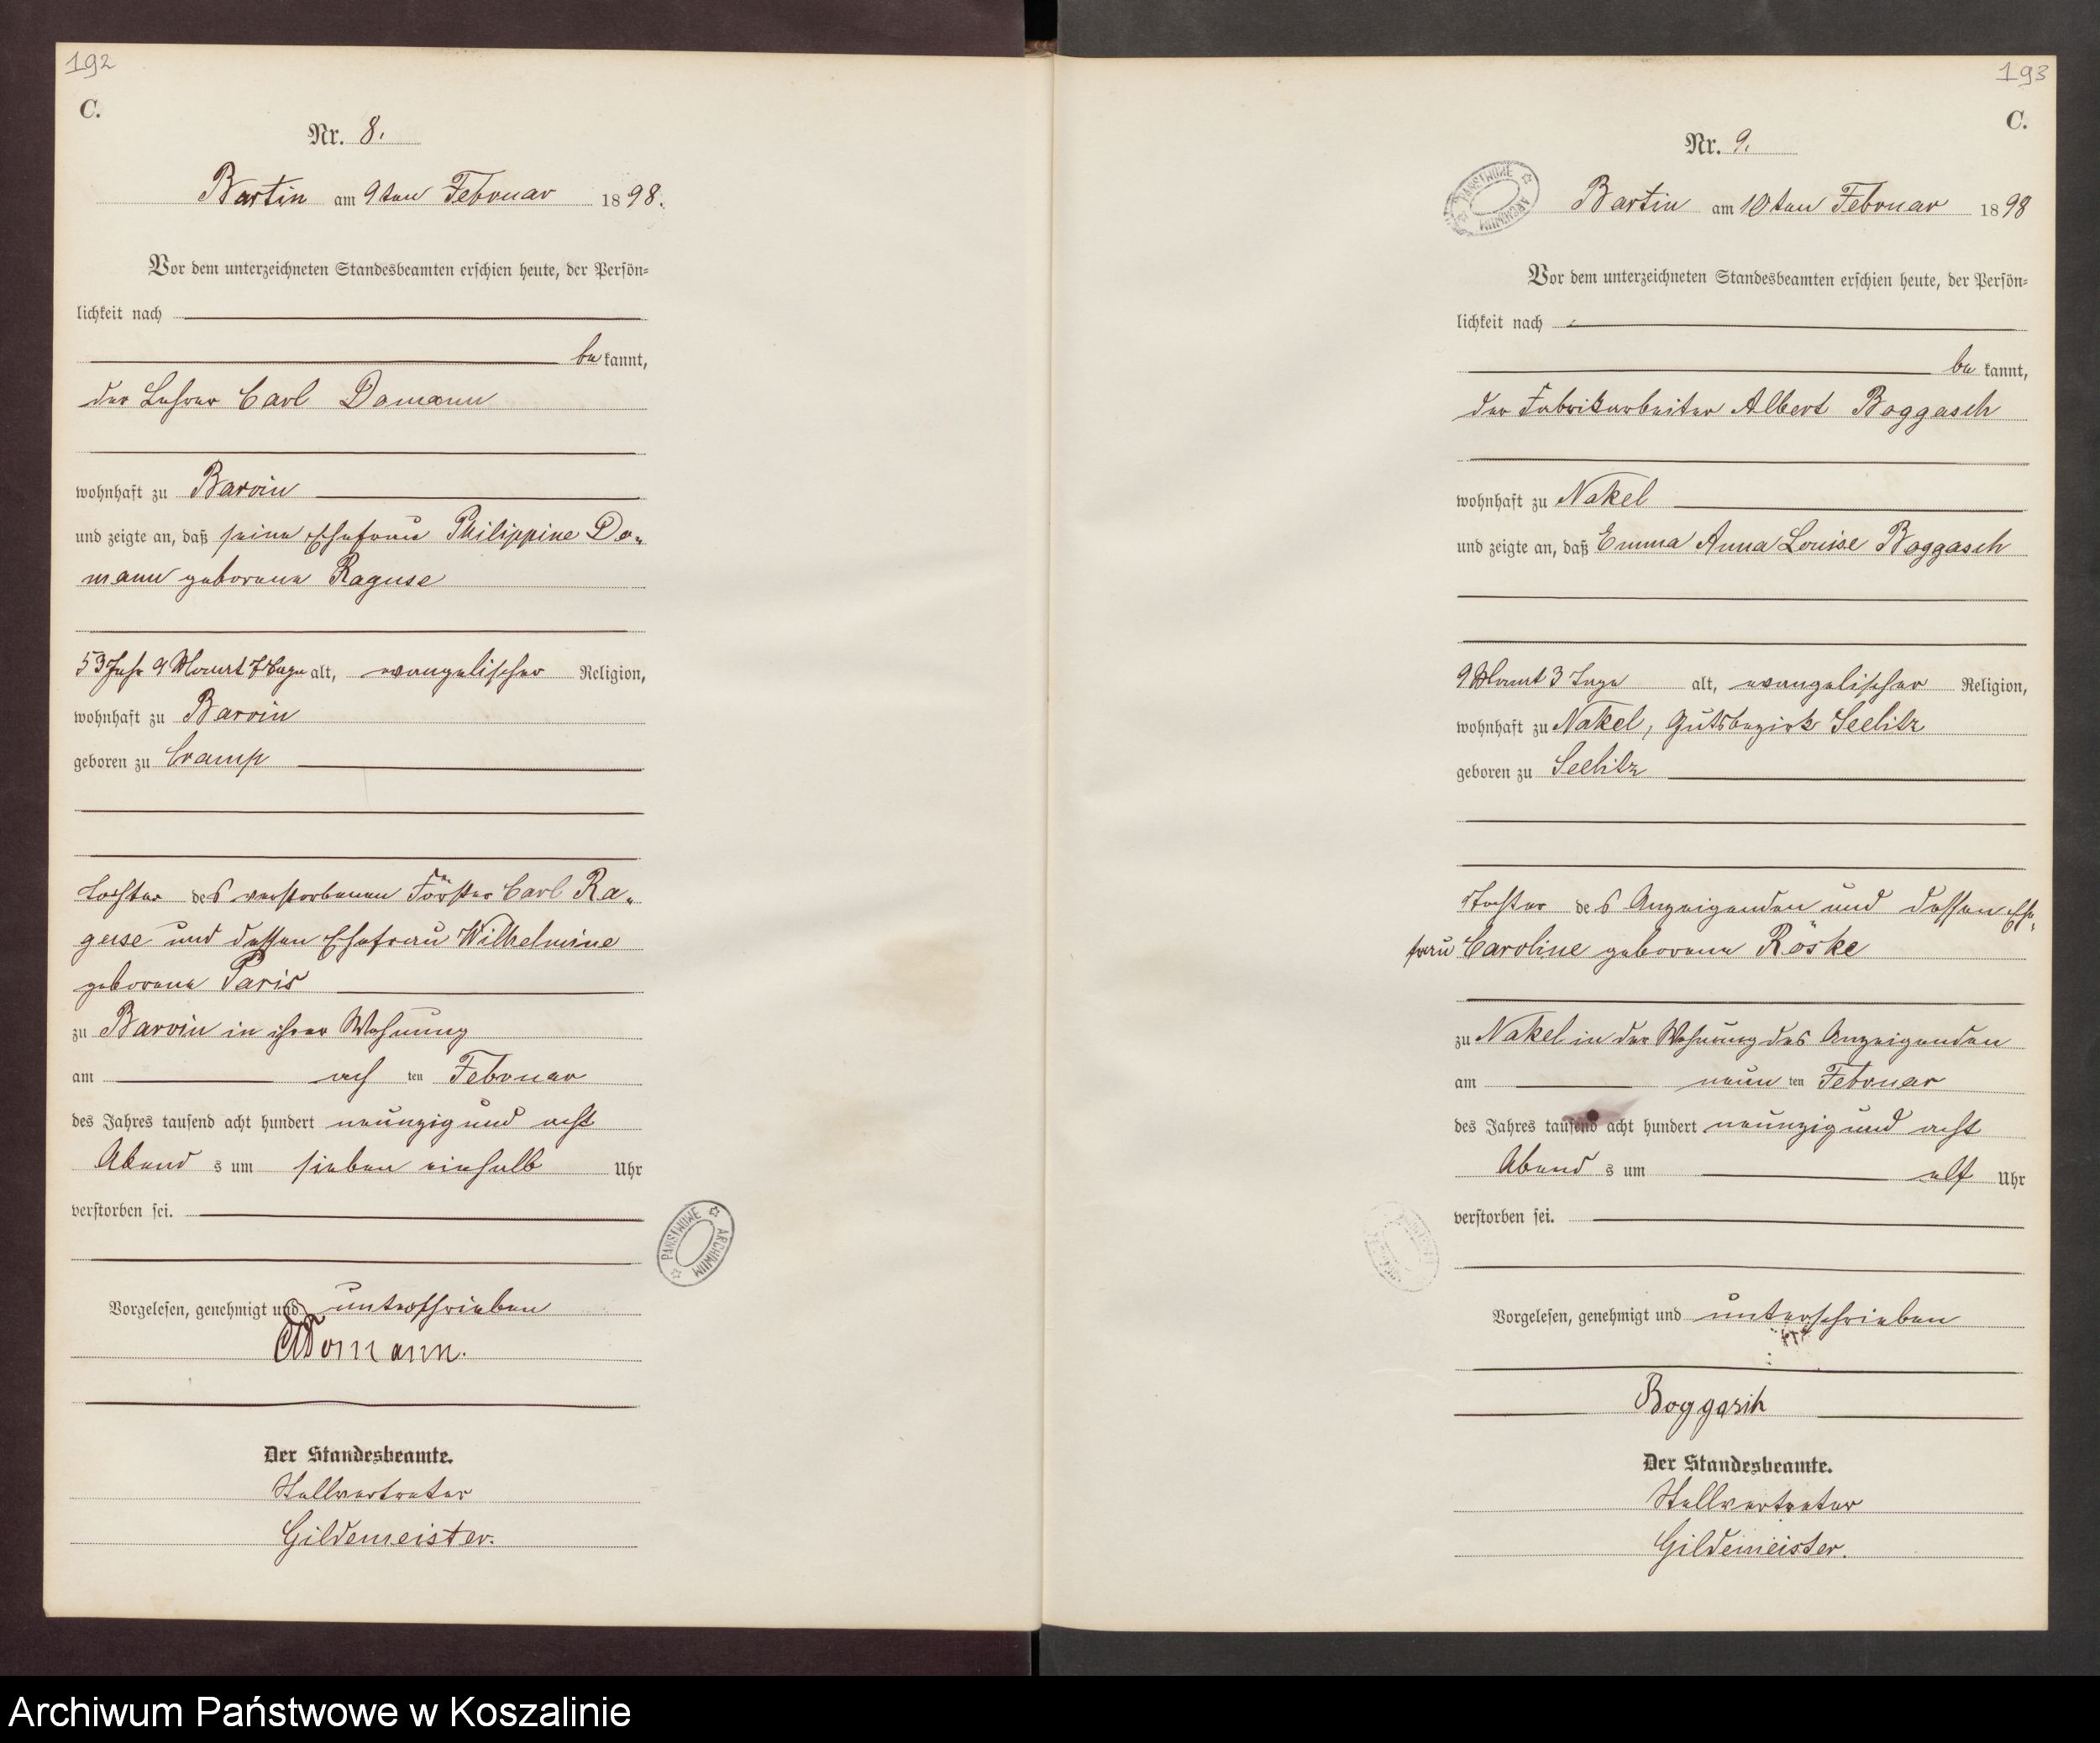 192
C.
Nr. 8.
Bartin am 9ten Februar 1898.
Vor dem unterzeichneten Standesbeamten erschien heute, der Persön-
lichkeit nach
be kannt,
der Lehrer Carl Domann
wohnhaft zu Barvin
und zeigte an, daß seine Ehefrau Philippine Do-
mann geborene Raguse
53 Jahr 9 Monat 7 Tage alt, evangelischer Religion,
wohnhaft zu Barvin
geboren zu Cramp
Tochter des verstorbenen Förster Carl Ra-
guse und dessen Ehefrau Wilhelmine
geborene Paris
zu Barvin in ihrer Wohnung
am ach ten Februar
des Jahres tausend acht hundert neunzig und acht
Abend s um sieben einhalb Uhr
verstorben sei.
PAŃSTWOWE ARCHIWUM
Vorgelesen, genehmigt und unterschrieben
Domann.
Der Standesbeamte.
Stellvertreter
Gildemeister.
193
C.
Nr. 9.
PAŃSTWOWE ARCHIWUM
Bartin am 10ten Februar 1898
Vor dem unterzeichneten Standesbeamten erschien heute, der Persön-
lichkeit nach
be kannt,
der Fabrikarbeiter Albert Boggasch
wohnhaft zu Nakel
und zeigte an, daß Emma Anna Louise Boggasch
9 Monat 3 Tage alt, evangelischer Religion,
wohnhaft zu Nakel, Gutsbezirk Seelitz
geboren zu Seelitz
Tochter des Anzeigenden und dessen Ehe-
frau Caroline geborene Röske
zu Nakel in der Wohnung des Anzeigenden
am neun ten Februar
des Jahres tausend acht hundert neunzig und acht
Abend s um elf Uhr
verstorben sei.
Vorgelesen, genehmigt und unterschrieben
Boggasch
Der Standesbeamte.
Stellvertreter
Gildemeister.
Archiwum Państwowe w Koszalinie